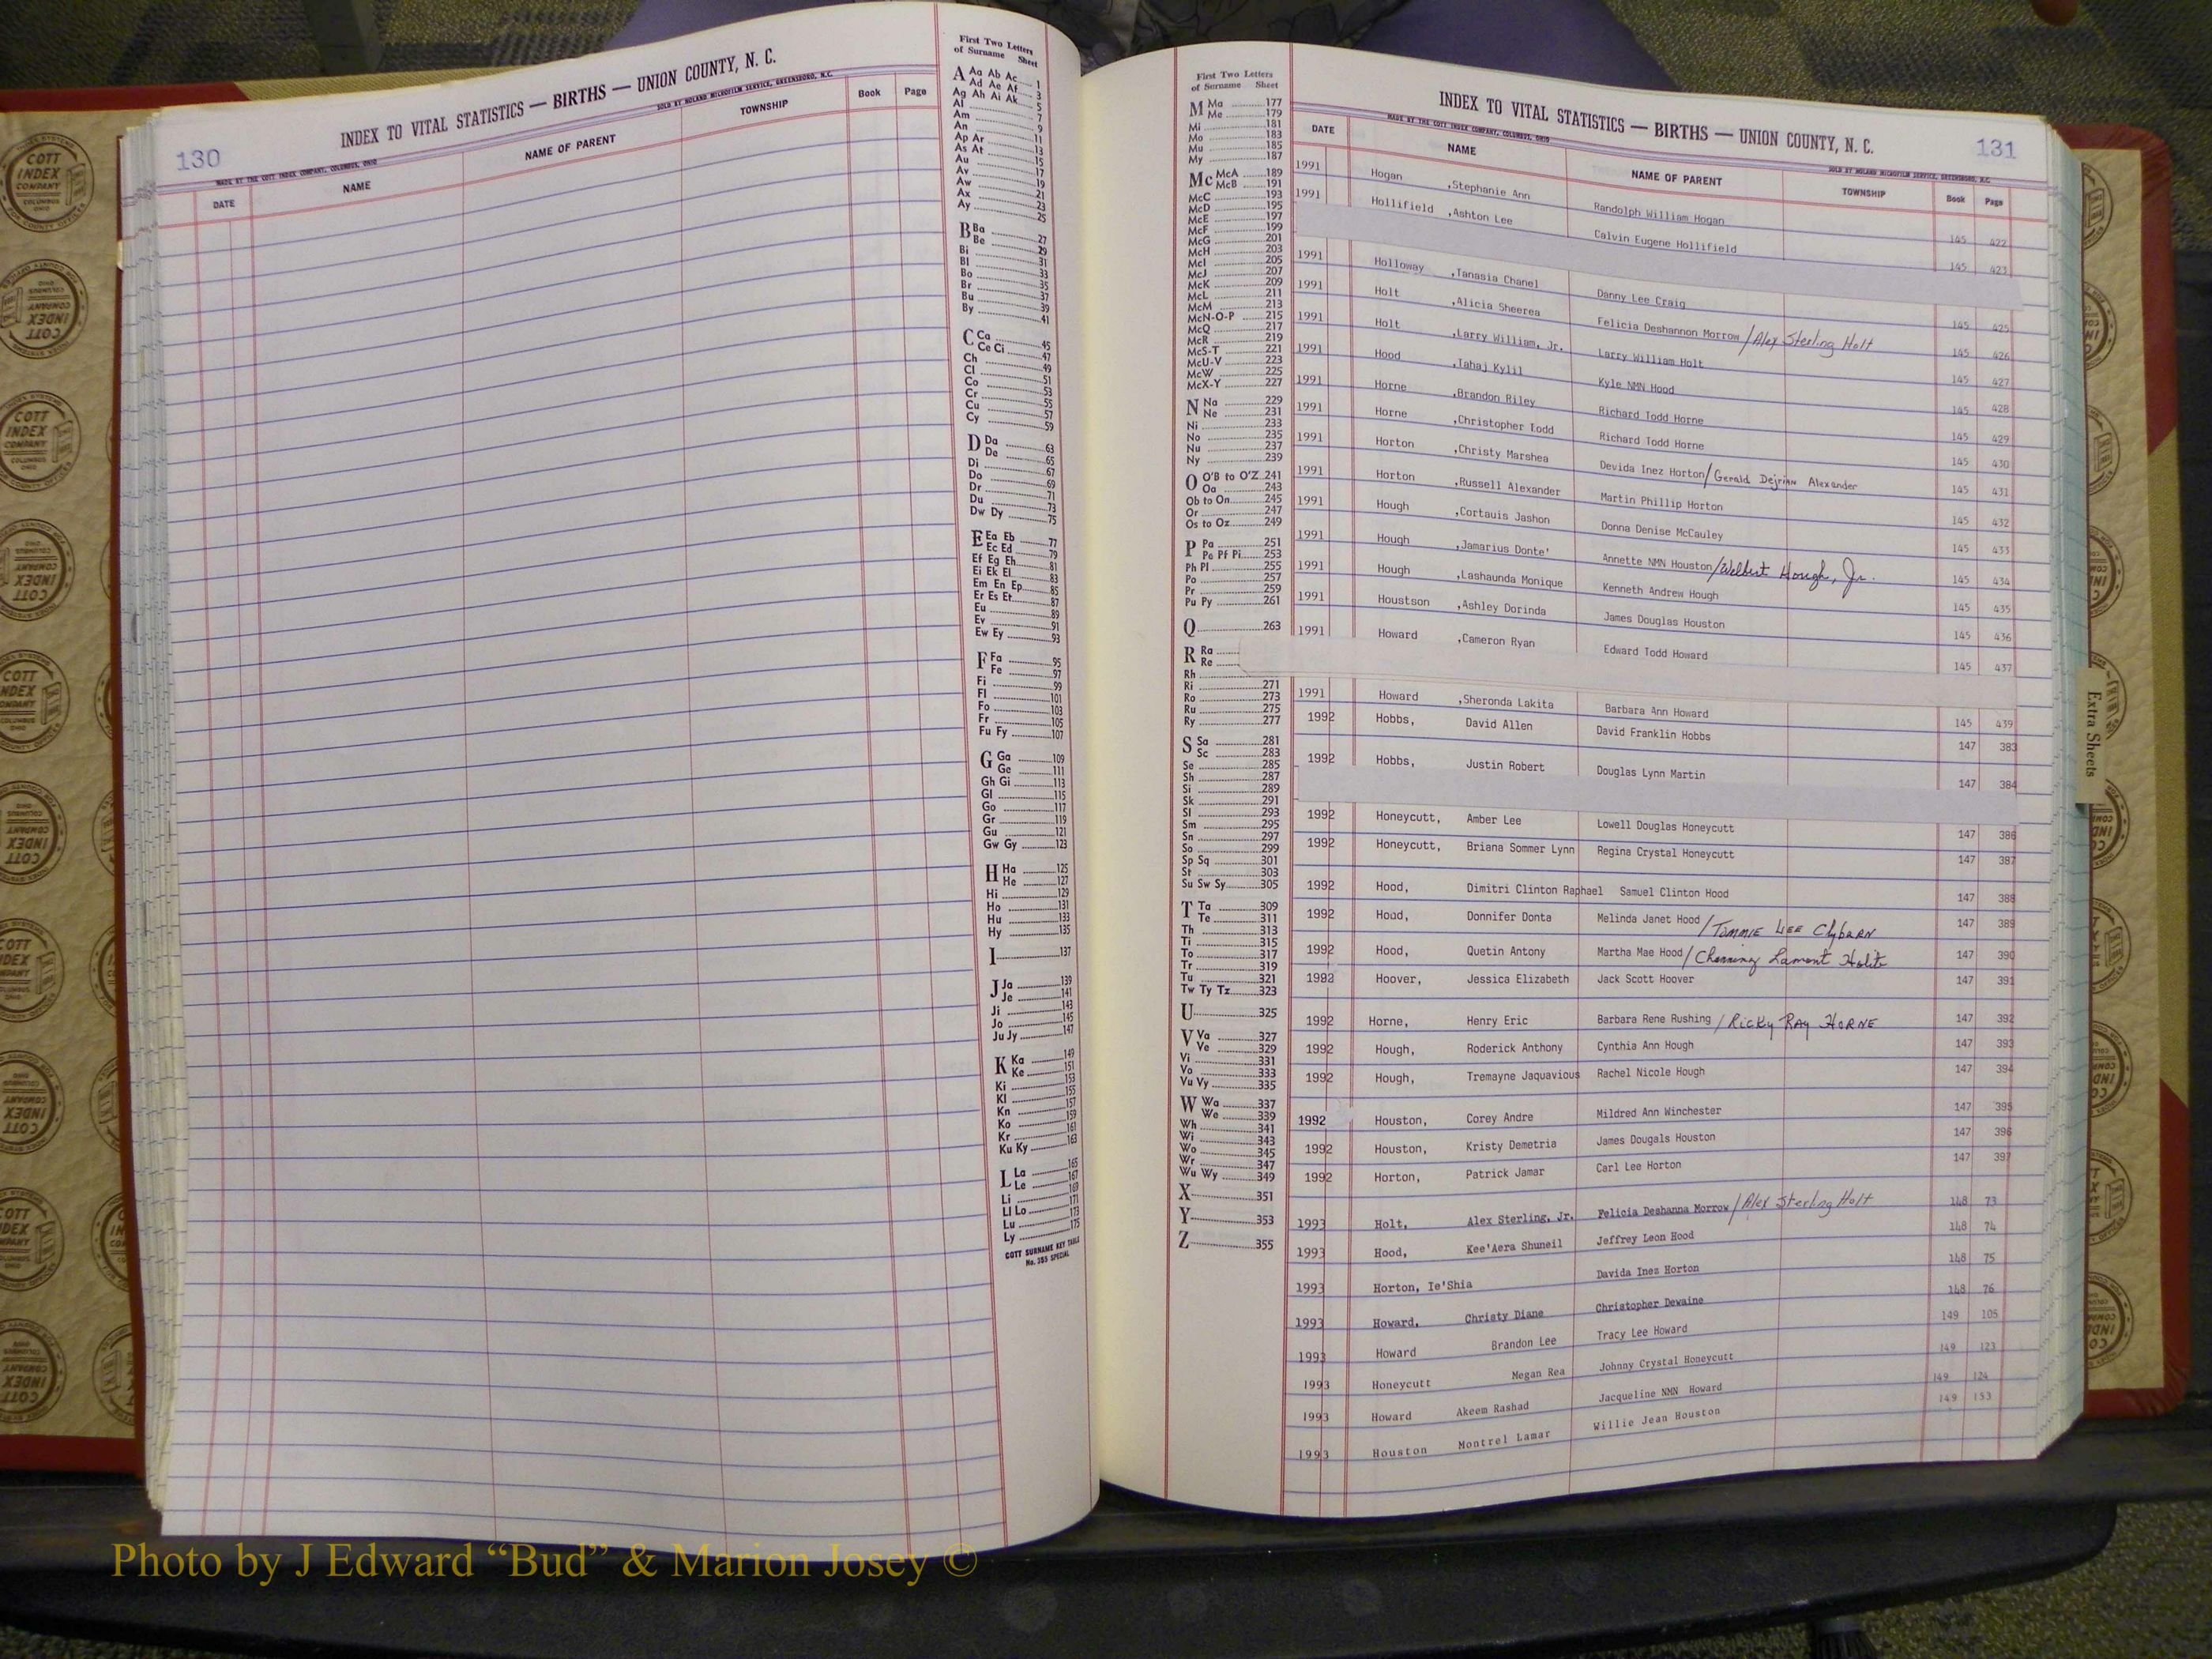 INDEX TO VITAL STATISTICS — BIRTHS — UNION COUNTY, N. C.
130
MADE BY THE COTT INDEX COMPANY, COLUMBUS, OHIO
SOLD BY NOLAND MICROFILM SERVICE, GREENSBORO, N.C.
DATE NAME NAME OF PARENT TOWNSHIP Book Page
First Two Letters
of Surname Sheet
A Aa Ab Ac 1
Ad Ae Af 3
Ag Ah Ai Ak 5
Al 7
Am 9
An 11
Ap Ar 13
As At 15
Au 17
Av 19
Aw 21
Ax 23
Ay 25
B Ba 27
Be 29
Bi 31
Bl 33
Bo 35
Br 37
Bu 39
By 41
C Ca 45
Ce Ci 47
Ch 49
Cl 51
Co 53
Cr 55
Cu 57
Cy 59
D Da 63
De 65
Di 67
Do 69
Dr 71
Du 73
Dw Dy 75
E Ea Eb 77
Ec Ed 79
Ef Eg Eh 81
Ei Ek El 83
Em En Ep 85
Er Es Et 87
Eu 89
Ev 91
Ew Ey 93
F Fa 95
Fe 97
Fi 99
Fl 101
Fo 103
Fr 105
Fu Fy 107
G Ga 109
Ge 111
Gh Gi 113
Gl 115
Go 117
Gr 119
Gu 121
Gw Gy 123
H Ha 125
He 127
Hi 129
Ho 131
Hu 133
Hy 135
I 137
J Ja 139
Je 141
Ji 143
Jo 145
Ju Jy 147
K Ka 149
Ke 151
Ki 153
Kl 155
Kn 157
Ko 159
Kr 161
Ku Ky 163
L La 165
Le 167
Li 169
Ll Lo 171
Lu 173
Ly 175
COTT SURNAME KEY TABLE
No. 355 SPECIAL
First Two Letters
of Surname Sheet
M Ma 177
Me 179
Mi 181
Mo 183
Mu 185
My 187
Mc McA 189
McB 191
McC 193
McD 195
McE 197
McF 199
McG 201
McH 203
McI 205
McJ 207
McK 209
McL 211
McM 213
McN-O-P 215
McQ 217
McR 219
McS-T 221
McU-V 223
McW 225
McX-Y 227
N Na 229
Ne 231
Ni 233
No 235
Nu 237
Ny 239
O O'B to O'Z 241
Oa 243
Ob to On 245
Or 247
Os to Oz 249
P Pa 251
Pe Pf Pi 253
Ph Pl 255
Po 257
Pr 259
Pu Py 261
Q 263
R Ra
Re
Rh
Ri 271
Ro 273
Ru 275
Ry 277
S Sa 281
Sc 283
Se 285
Sh 287
Si 289
Sk 291
Sl 293
Sm 295
Sn 297
So 299
Sp Sq 301
St 303
Su Sw Sy 305
T Ta 309
Te 311
Th 313
Ti 315
To 317
Tr 319
Tu 321
Tw Ty Tz 323
U 325
V Va 327
Ve 329
Vi 331
Vo 333
Vu Vy 335
W Wa 337
We 339
Wh 341
Wi 343
Wo 345
Wr 347
Wu Wy 349
X 351
Y 353
Z 355
INDEX TO VITAL STATISTICS — BIRTHS — UNION COUNTY, N. C.
131
MADE BY THE COTT INDEX COMPANY, COLUMBUS, OHIO
SOLD BY NOLAND MICROFILM SERVICE, GREENSBORO, N.C.
DATE NAME NAME OF PARENT TOWNSHIP Book Page
1991 Hogan ,Stephanie Ann Randolph William Hogan 145 422
1991 Hollifield ,Ashton Lee Calvin Eugene Hollifield 145 423
1991 Holloway ,Tanasia Chanel Danny Lee Craig 145 425
1991 Holt ,Alicia Sheerea Felicia Deshannon Morrow /Alex Sterling Holt 145 426
1991 Holt ,Larry William, Jr. Larry William Holt 145 427
1991 Hood ,Tahaj Kylil Kyle NMN Hood 145 428
1991 Horne ,Brandon Riley Richard Todd Horne 145 429
1991 Horne ,Christopher Todd Richard Todd Horne 145 430
1991 Horton ,Christy Marshea Devida Inez Horton/Gerald Dejrian Alexander 145 431
1991 Horton ,Russell Alexander Martin Phillip Horton 145 432
1991 Hough ,Cortauis Jashon Donna Denise McCauley 145 433
1991 Hough ,Jamarius Donte' Annette NMN Houston/Welbert Hough, Jr. 145 434
1991 Hough ,Lashaunda Monique Kenneth Andrew Hough 145 435
1991 Houstson ,Ashley Dorinda James Douglas Houston 145 436
1991 Howard ,Cameron Ryan Edward Todd Howard 145 437
1991 Howard ,Sheronda Lakita Barbara Ann Howard 145 439
1992 Hobbs, David Allen David Franklin Hobbs 147 383
1992 Hobbs, Justin Robert Douglas Lynn Martin 147 384
1992 Honeycutt, Amber Lee Lowell Douglas Honeycutt 147 386
1992 Honeycutt, Briana Sommer Lynn Regina Crystal Honeycutt 147 387
1992 Hood, Dimitri Clinton Raphael Samuel Clinton Hood 147 388
1992 Hood, Donnifer Donta Melinda Janet Hood /Tommie Lee Clyburn 147 389
1992 Hood, Quetin Antony Martha Mae Hood/Channing Lamont 147 390
1992 Hoover, Jessica Elizabeth Jack Scott Hoover 147 391
1992 Horne, Henry Eric Barbara Rene Rushing /Ricky Ray Horne 147 392
1992 Hough, Roderick Anthony Cynthia Ann Hough 147 393
1992 Hough, Tremayne Jaquavious Rachel Nicole Hough 147 394
1992 Houston, Corey Andre Mildred Ann Winchester 147 395
1992 Houston, Kristy Demetria James Dougals Houston 147 396
1992 Horton, Patrick Jamar Carl Lee Horton 147 397
1993 Holt, Alex Sterling, Jr. Felicia Deshanna Morrow /Alex Sterling Holt 148 73
1993 Hood, Kee'Aera Shuneil Jeffrey Leon Hood 148 74
1993 Horton, Ie'Shia Davida Inez Horton 148 75
1993 Howard, Christy Diane Christopher Dewaine 148 76
1993 Howard Brandon Lee Tracy Lee Howard 149 105
1993 Honeycutt Megan Rea Johnny Crystal Honeycutt 149 123
1993 Howard Akeem Rashad Jacqueline NMN Howard 149 124
1993 Houston Montrel Lamar Willie Jean Houston 149 153
Extra Sheets
COTT INDEX COMPANY
Photo by J Edward “Bud” & Marion Josey ©